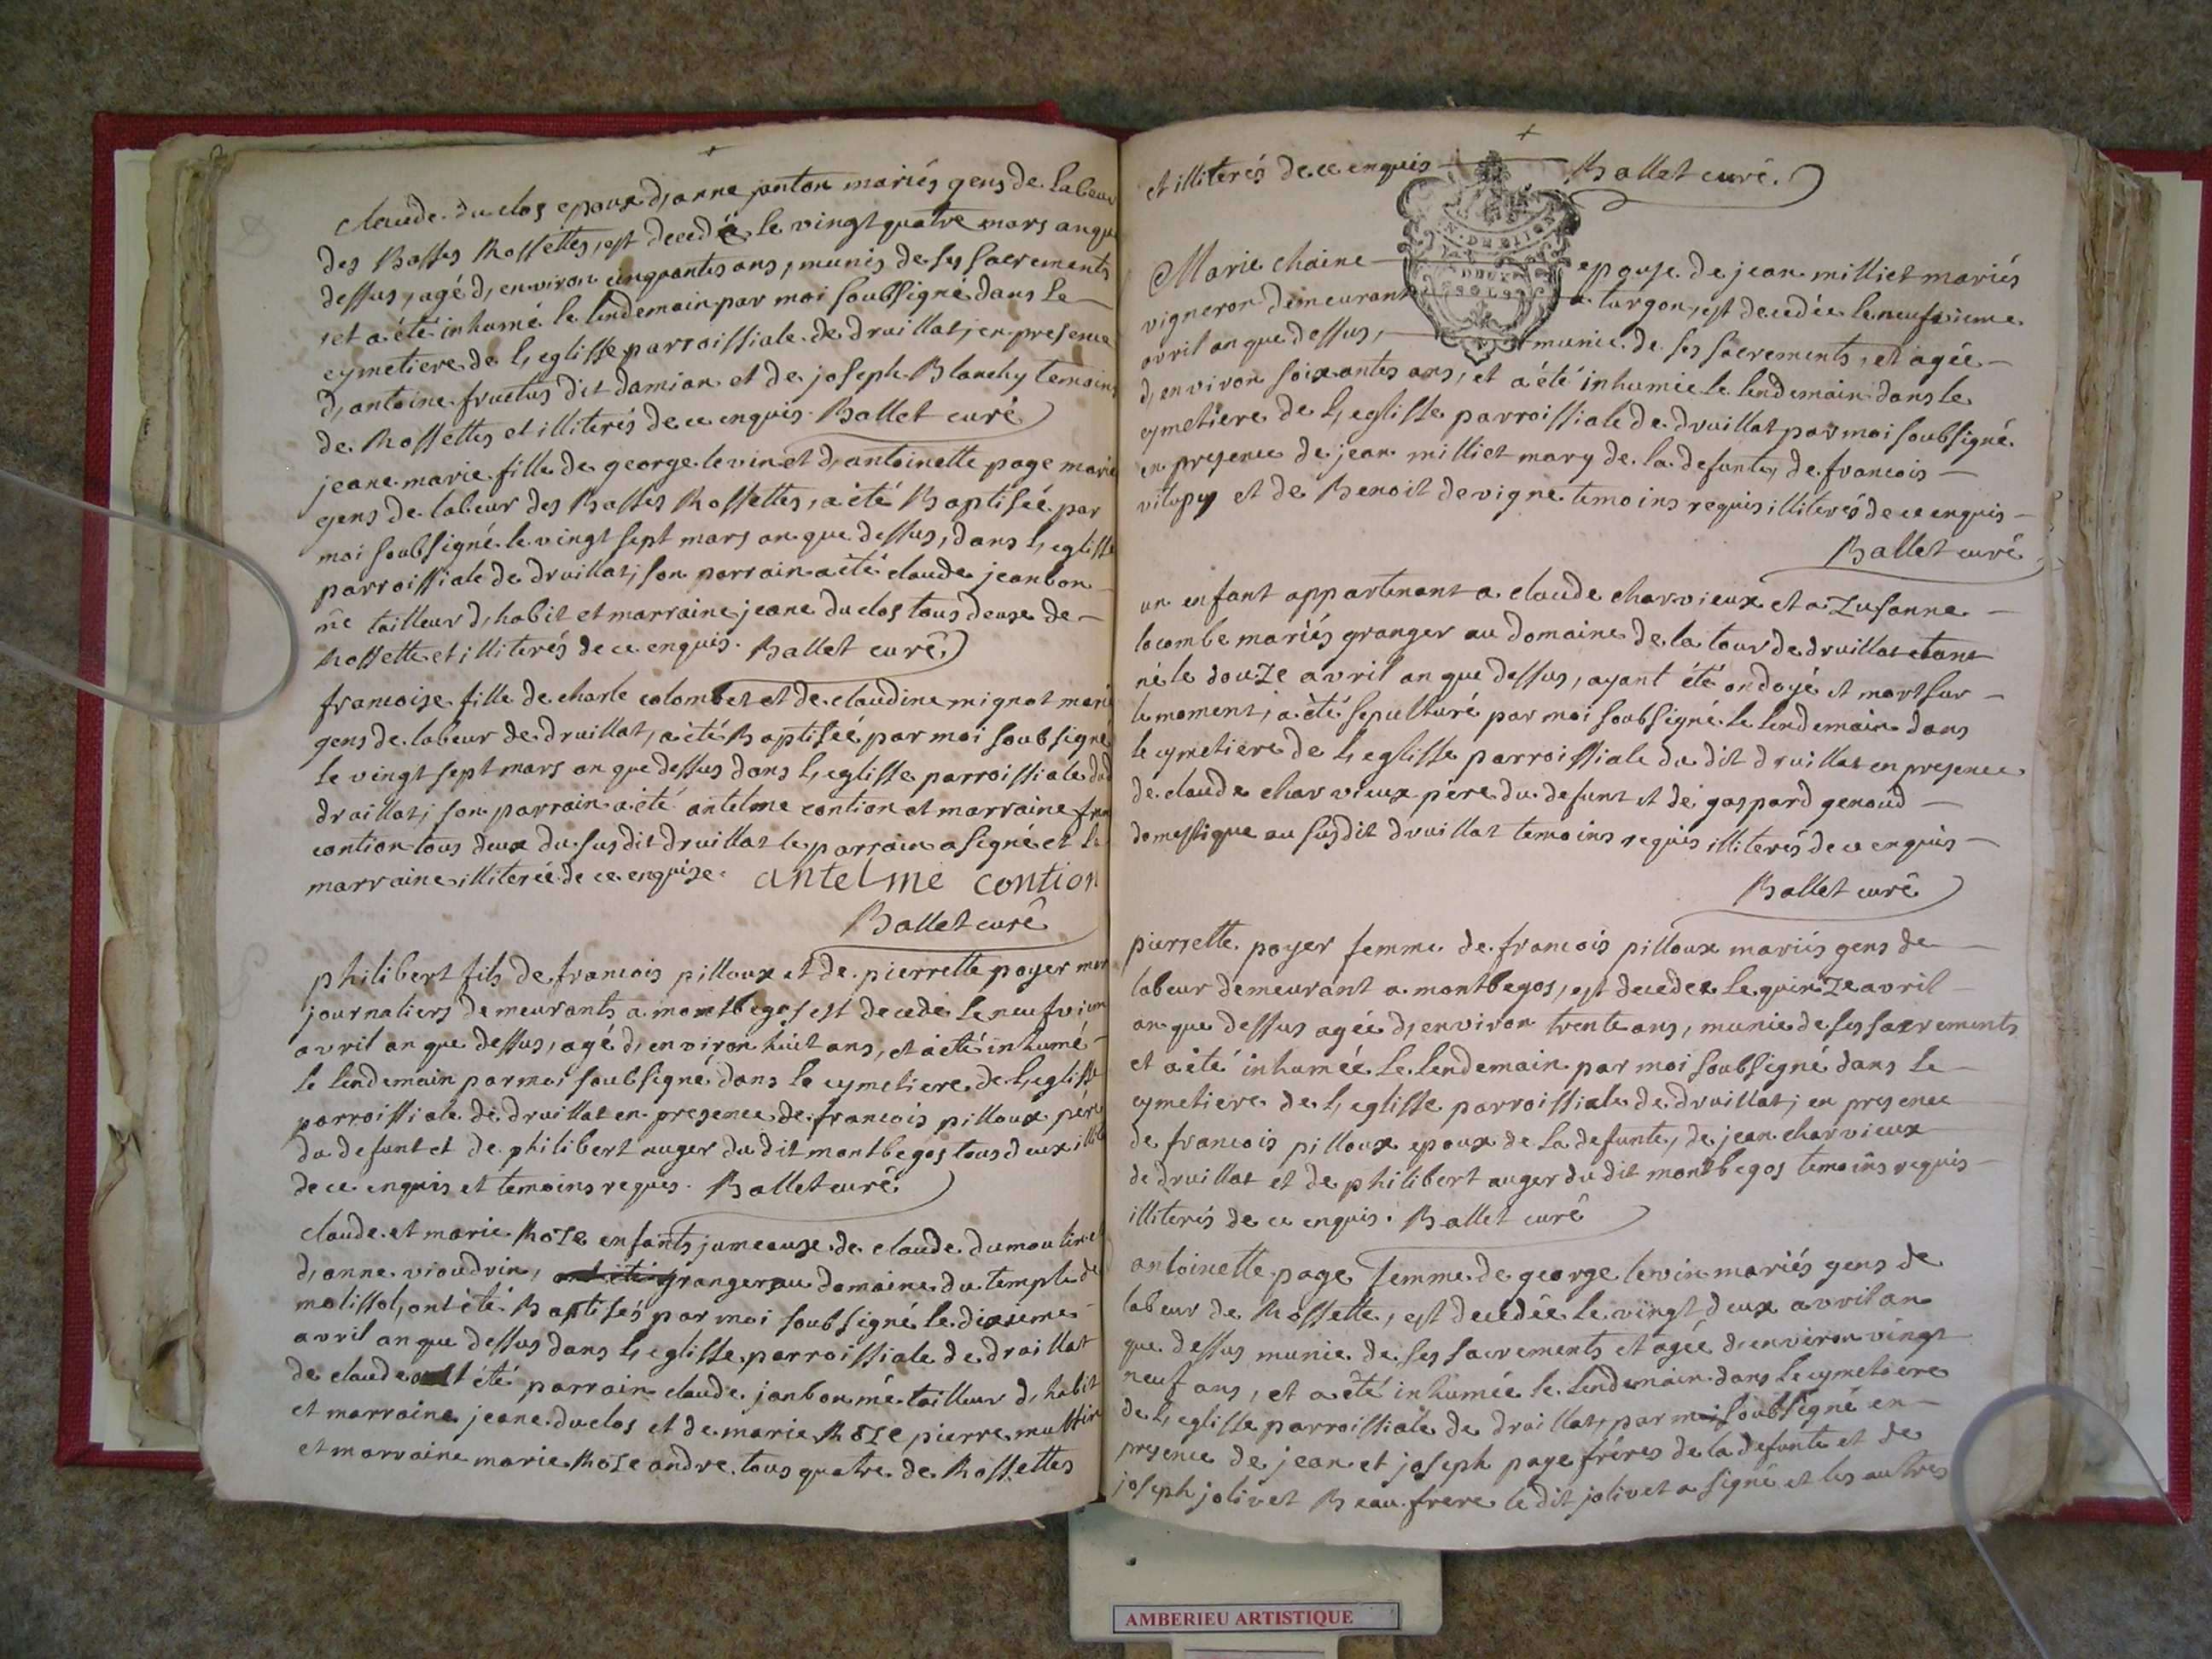 claude duclos epoux d,anne janton mariés gens de labeur
des Basses Rossettes, est decedé le vingt quatre mars an que
dessus, agé d,environ cinquantes ans, munis de ses sacrements
et a été inhumé le lendemain par moi soubsigné dans le
cymetiere de l,eglisse parroissiale de druillat, en presence
d,antoine fructus dit damian et de joseph Blanchy temoins
de Rossettes et illiterés de ce enquis. Ballet curé
jeane marie fille de george levin et d,antoinette page marié
gens de labeur des Basses Rossettes, a été Baptisée par
moi soubsigné le vingt sept mars an que dessus, dans l,eglisse
parroissiale de druillat; son parrain a été claude jeanbon
mê tailleur d,habit et marraine jeane duclos tous deux de
Rossette et illiterés de ce enquis. Ballet curé
francoise fille de charle colombet et de claudine mignot marié
gens de labeur de druillat, a été Baptisée par moi soubsigné
le vingt sept mars an que dessus dans l,eglisse parroissiale dud
druillat; son parrain a été antelme contion et marraine fran
contion tous deux du susdit druillat le parrain a signé et la
marraine illiterée de ce enquise. antelme contion
Ballet curé
philibert fils de francois pilloux et de pierrette payer mar
journaliers demeurants a montbegos est decedé le neufvieme
avril an que dessus, agé d,environ huit ans, et a été inhumé
le lendemain par moi soubsigné dans le cymetiere de l,eglisse
parroissiale de druillat en presence de francois pilloux pére
du defunt et de philibert auger du dit montbegos tous deux illite
de ce enquis et temoins requis. Ballet curé
claude et marie Roze enfants jumeaux de claude dumoulin et
d,anne vioudrin, grangers au domaine du temple de
molissol, ont été Baptisés par moi soubsigné le dixieme
avril an que dessus dans l,eglisse parroissiale de druillat
de claude été parrain claude janbon mê tailleur d,habit
et marraine jeane duclos et de marie Roze pierre
et marraine marie Roze andre tous quatre de Rossettes
et illiterés de ce enquis Ballet curé.
Marie chaine epouse de jean milliet mariés
vigneron demeurant a turgon, est decedée le neufvieme
avril an que dessus, munie de ses sacrements, et agée
d,environ soixantes ans, et a été inhumée le lendemain dans le
cymetiere de l,eglisse parroissiale de druillat par moi soubsigné
en presence de jean milliet mary de la defunte, de francois
vitupy et de Benoit devigne temoins requis illiterés de ce enquis
Ballet curé
un enfant appartenant a claude charvieux et a zusanne
lacombe mariés granger au domaine de la tour de druillat etant
né le douze avril an que dessus, ayant été ondoyé et mort sur
le moment, a été sepulturé par moi soubsigné le lendemain dans
le cymetiere de l,eglisse parroissiale du dit druillat en presence
de claude charvieux père du defunt et de gaspard genoud
domestique au susdit druillat temoins requis illiterés de ce enquis
Ballet curé
pierrette payer femme de francois pilloux mariés gens de
labeur demeurant a montbegos, est decedée le quinze avril
an que dessus agée d,environ trente ans, munie de ses sacrements
et a été inhumée le lendemain par moi soubsigné dans le
cymetiere de l,eglisse parroissiale de druillat; en presence
de francois pilloux epoux de la defunte, de jean charvieux
de druillat et de philibert auger du dit montbegos temoins requis
illiterés de ce enquis. Ballet curé
antoinette page femme de george levin mariés gens de
labeur de Rossette, est decedée le vingt deux avril an
que dessus munie de ses sacrements et agée d,environ vingt
neuf ans, et a été inhumée le lendemain dans le cymetiere
de l,eglisse parroissiale de druillat, par moi soubsigné en
presence de jean et joseph page fréres de la defunte et de
joseph jolivet Beau frere le dit jolivet a signé et les autres
AMBERIEU ARTISTIQUE